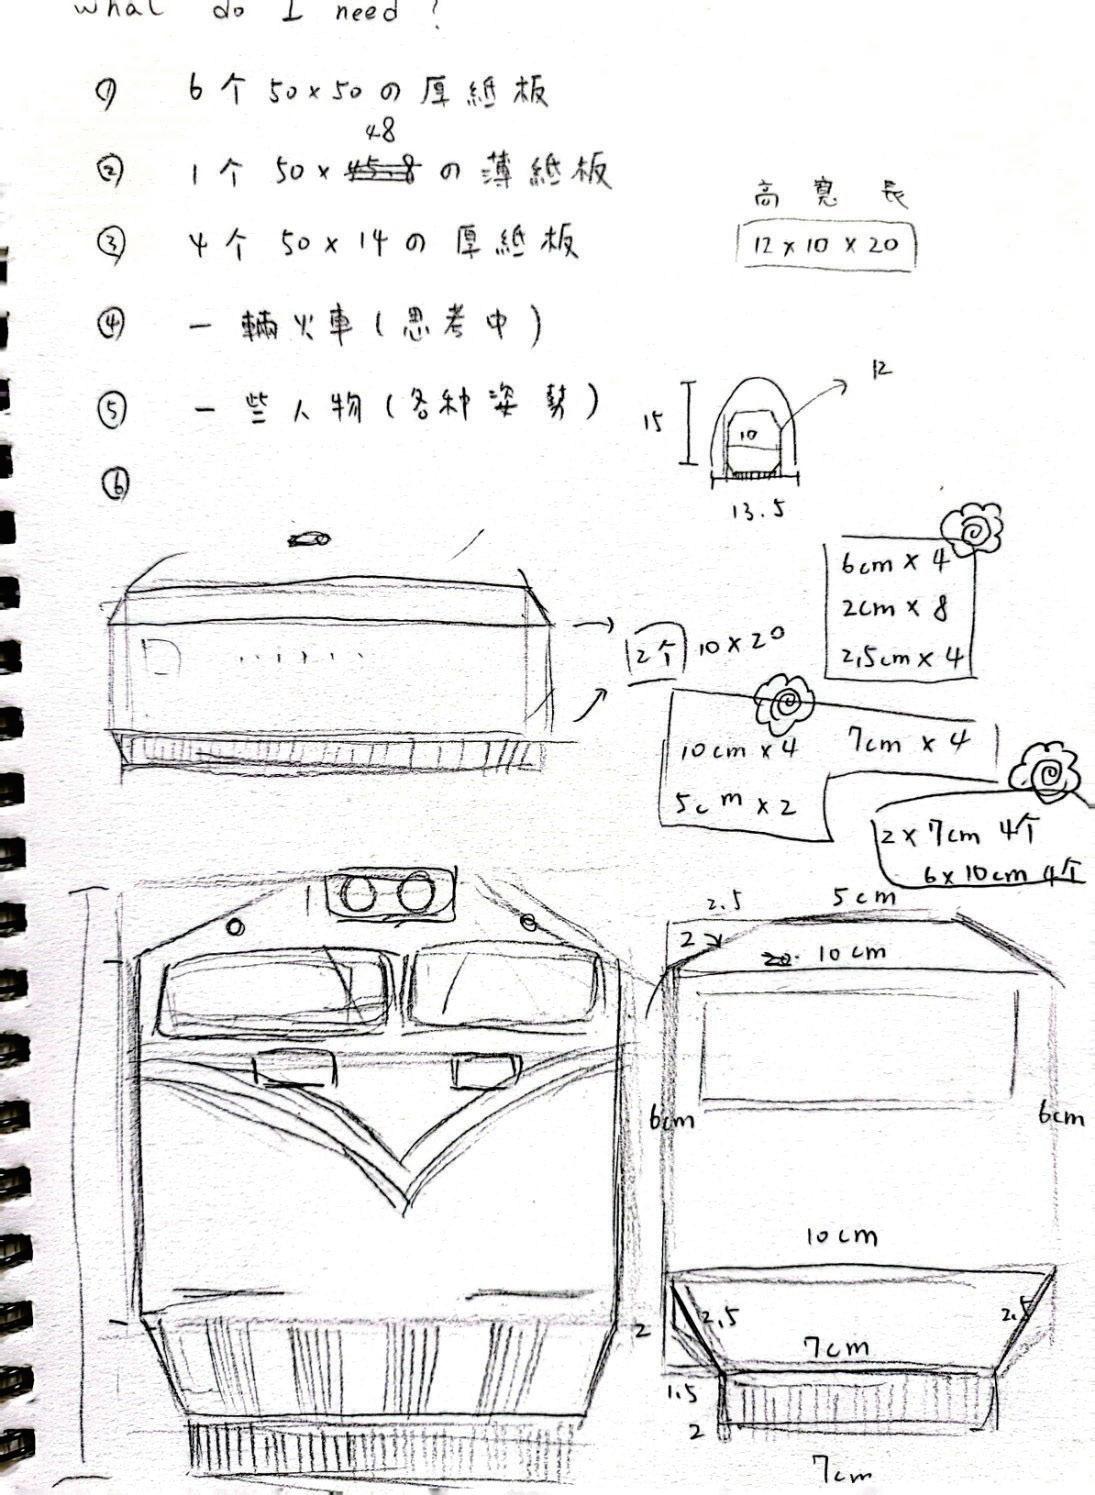 what do I need?
① 6个 50×50の厚紙板
48
② 1个 50×45.8の薄紙板
③ 4个 50×14の厚紙板
④ 一輛火車(思考中)
⑤ 一些人物(各种姿勢)
⑥
高 寬 長
12×10×20
12
15
10
13.5
6cm × 4
2cm × 8
2,5cm × 4
2个 10×20
10cm × 4 7cm × 4
5cm × 2
2×7cm 4个
6×10cm 4个
2.5 5cm
2
10cm
6cm 6cm
10cm
2
2.5 2.5
7cm
1.5
2
7cm